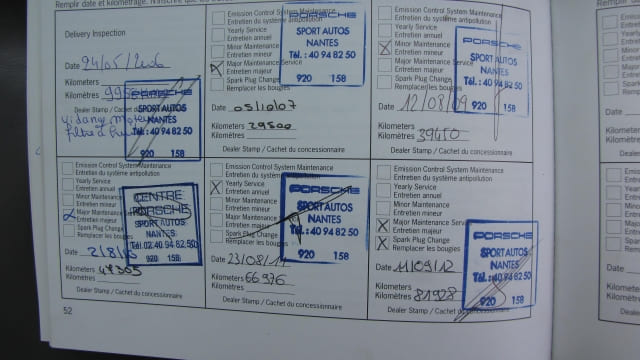 Remplir date et kilométrage.
Delivery Inspection
Date 24/05/2006
Kilometers
Kilomètres
Dealer Stamp / Cachet du
vidange
filtre à
PORSCHE
SPORT AUTOS
NANTES
Tél.: 40 94 82 50
920 158
Emission Control System Maintenance
Entretien du système antipollution
Yearly Service
Entretien annuel
Minor Maintenance
Entretien mineur
X Major Maintenance Service
Entretien majeur
Spark Plug Change
Remplacer les bougies
Date 05/10/07
Kilometers
Kilomètres 29500
Dealer Stamp / Cachet du concessionnaire
PORSCHE
SPORT AUTOS
NANTES
Tél.: 40 94 82 50
920 158
Emission Control System Maintenance
Entretien du système antipollution
Yearly Service
Entretien annuel
X Minor Maintenance
Entretien mineur
Major Maintenance
Entretien majeur
Spark Plug Change
Remplacer les bougies
Date 12/08/09
Kilometers
Kilomètres 39450
Dealer Stamp / Cachet du concessionnaire
PORSCHE
SPORT AUTOS
NANTES
Tél.: 40 94 82 50
920 158
Emission Control System Maintenance
Entretien du système antipollution
Yearly Service
Entretien annuel
Minor Maintenance
Entretien mineur
X Major Maintenance
Entretien majeur
Spark Plug Change
Remplacer les bougies
Date 2/8/
Kilometers
Kilomètres 47305
Dealer Stamp / Cachet du concessionnaire
CENTRE
PORSCHE
SPORT AUTOS
NANTES
Tél. 02.40 94 82 50
920 158
Emission Control System Maintenance
Entretien du système antipollution
X Yearly Service
Entretien annuel
Minor Maintenance
Entretien mineur
Major Maintenance
Entretien majeur
Spark Plug Change
Remplacer les bougies
Date 23/08/11
Kilometers
Kilomètres 66976
Dealer Stamp / Cachet du concessionnaire
PORSCHE
SPORT AUTOS
NANTES
Tél.: 40 94 82 50
920 158
Emission Control System Maintenance
Entretien du système antipollution
Yearly Service
Entretien annuel
Minor Maintenance
Entretien mineur
X Major Maintenance Service
Entretien majeur
X Spark Plug Change
Remplacer les bougies
Date 11/09/12
Kilometers
Kilomètres 81928
Dealer Stamp / Cachet du concessionnaire
PORSCHE
SPORT AUTOS
NANTES
Tél.: 40 94 82 50
920 158
52